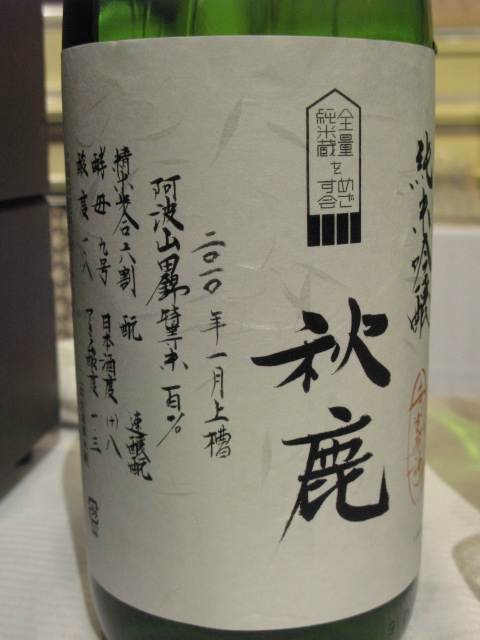 純米吟醸
全量
純米蔵を
めざ
す会
秋鹿
二〇一〇年一月上槽
阿波山田錦特等米百%
精米歩合六割 酛 速醸酛
酵母 九号 日本酒度 (+)八
酸度 一・八 アミノ酸度 一・三